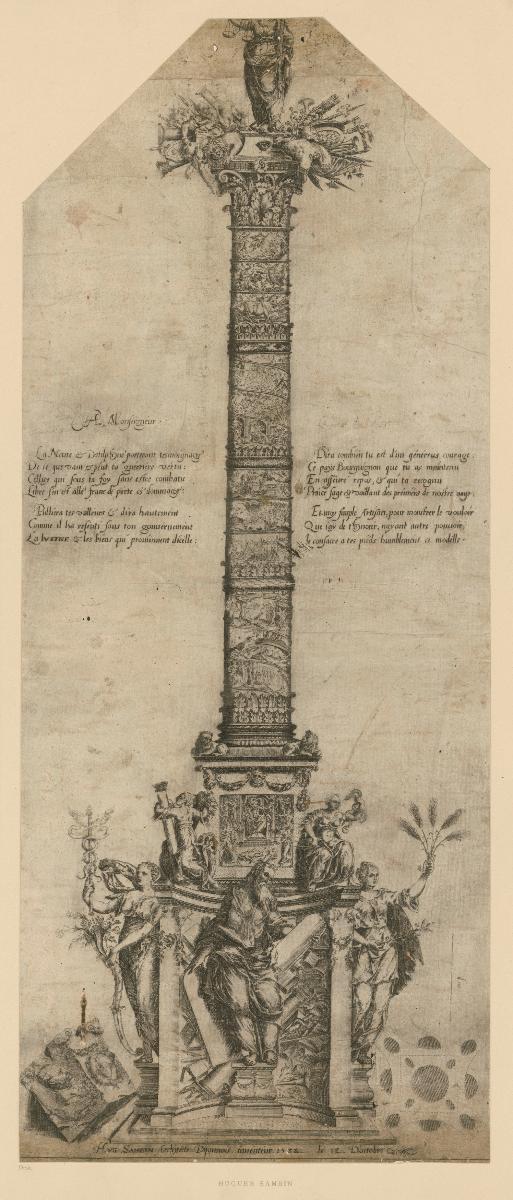 A Monseigneur.
La Mort & porteront tesmoignage
De ce que vaut & peut ta guerriere vertu:
Celluy qui sous ta foy sans estre combatu
Libre s'en est allé franc de perte & dommage.
Publira ta valleur & dira hautement
Comme il ha resenti sous ton gouvernement
La & les biens qui proviennent d'icelle:
Dira combien tu est d'un genereus courage:
Ce pays Bourguignon que tu as maintenu
En asseuré repos, & qui ta recognu
Prince sage & vaillant des premiers de nostre aage.
Et moy simple Artisan, pour monstrer le vouloir
Que i'ay de t'honorer, n'ayant autre pouvoir,
Je consacre a tes pieds humblement ce modelle.
HUG SAMBIN Architecte Dijonnois inventeur 15 le 18 D'octobre
HUGUES SAMBIN